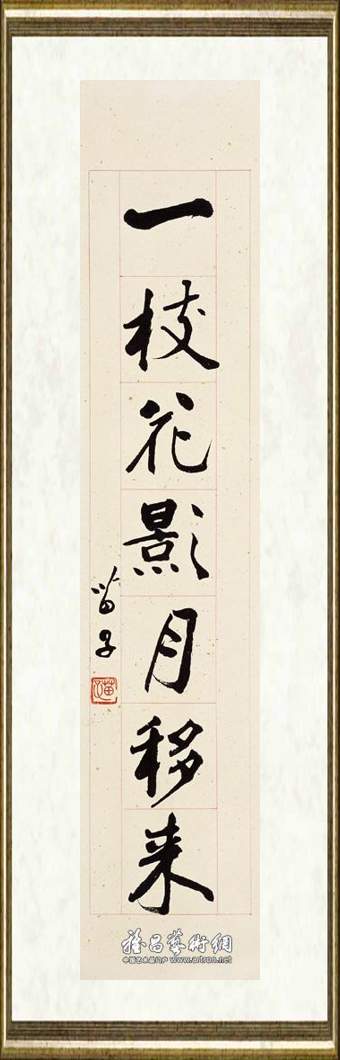 一枝花影月移来
苗子
苗
雅昌藝術網
中国艺术品门户 www.artron.net